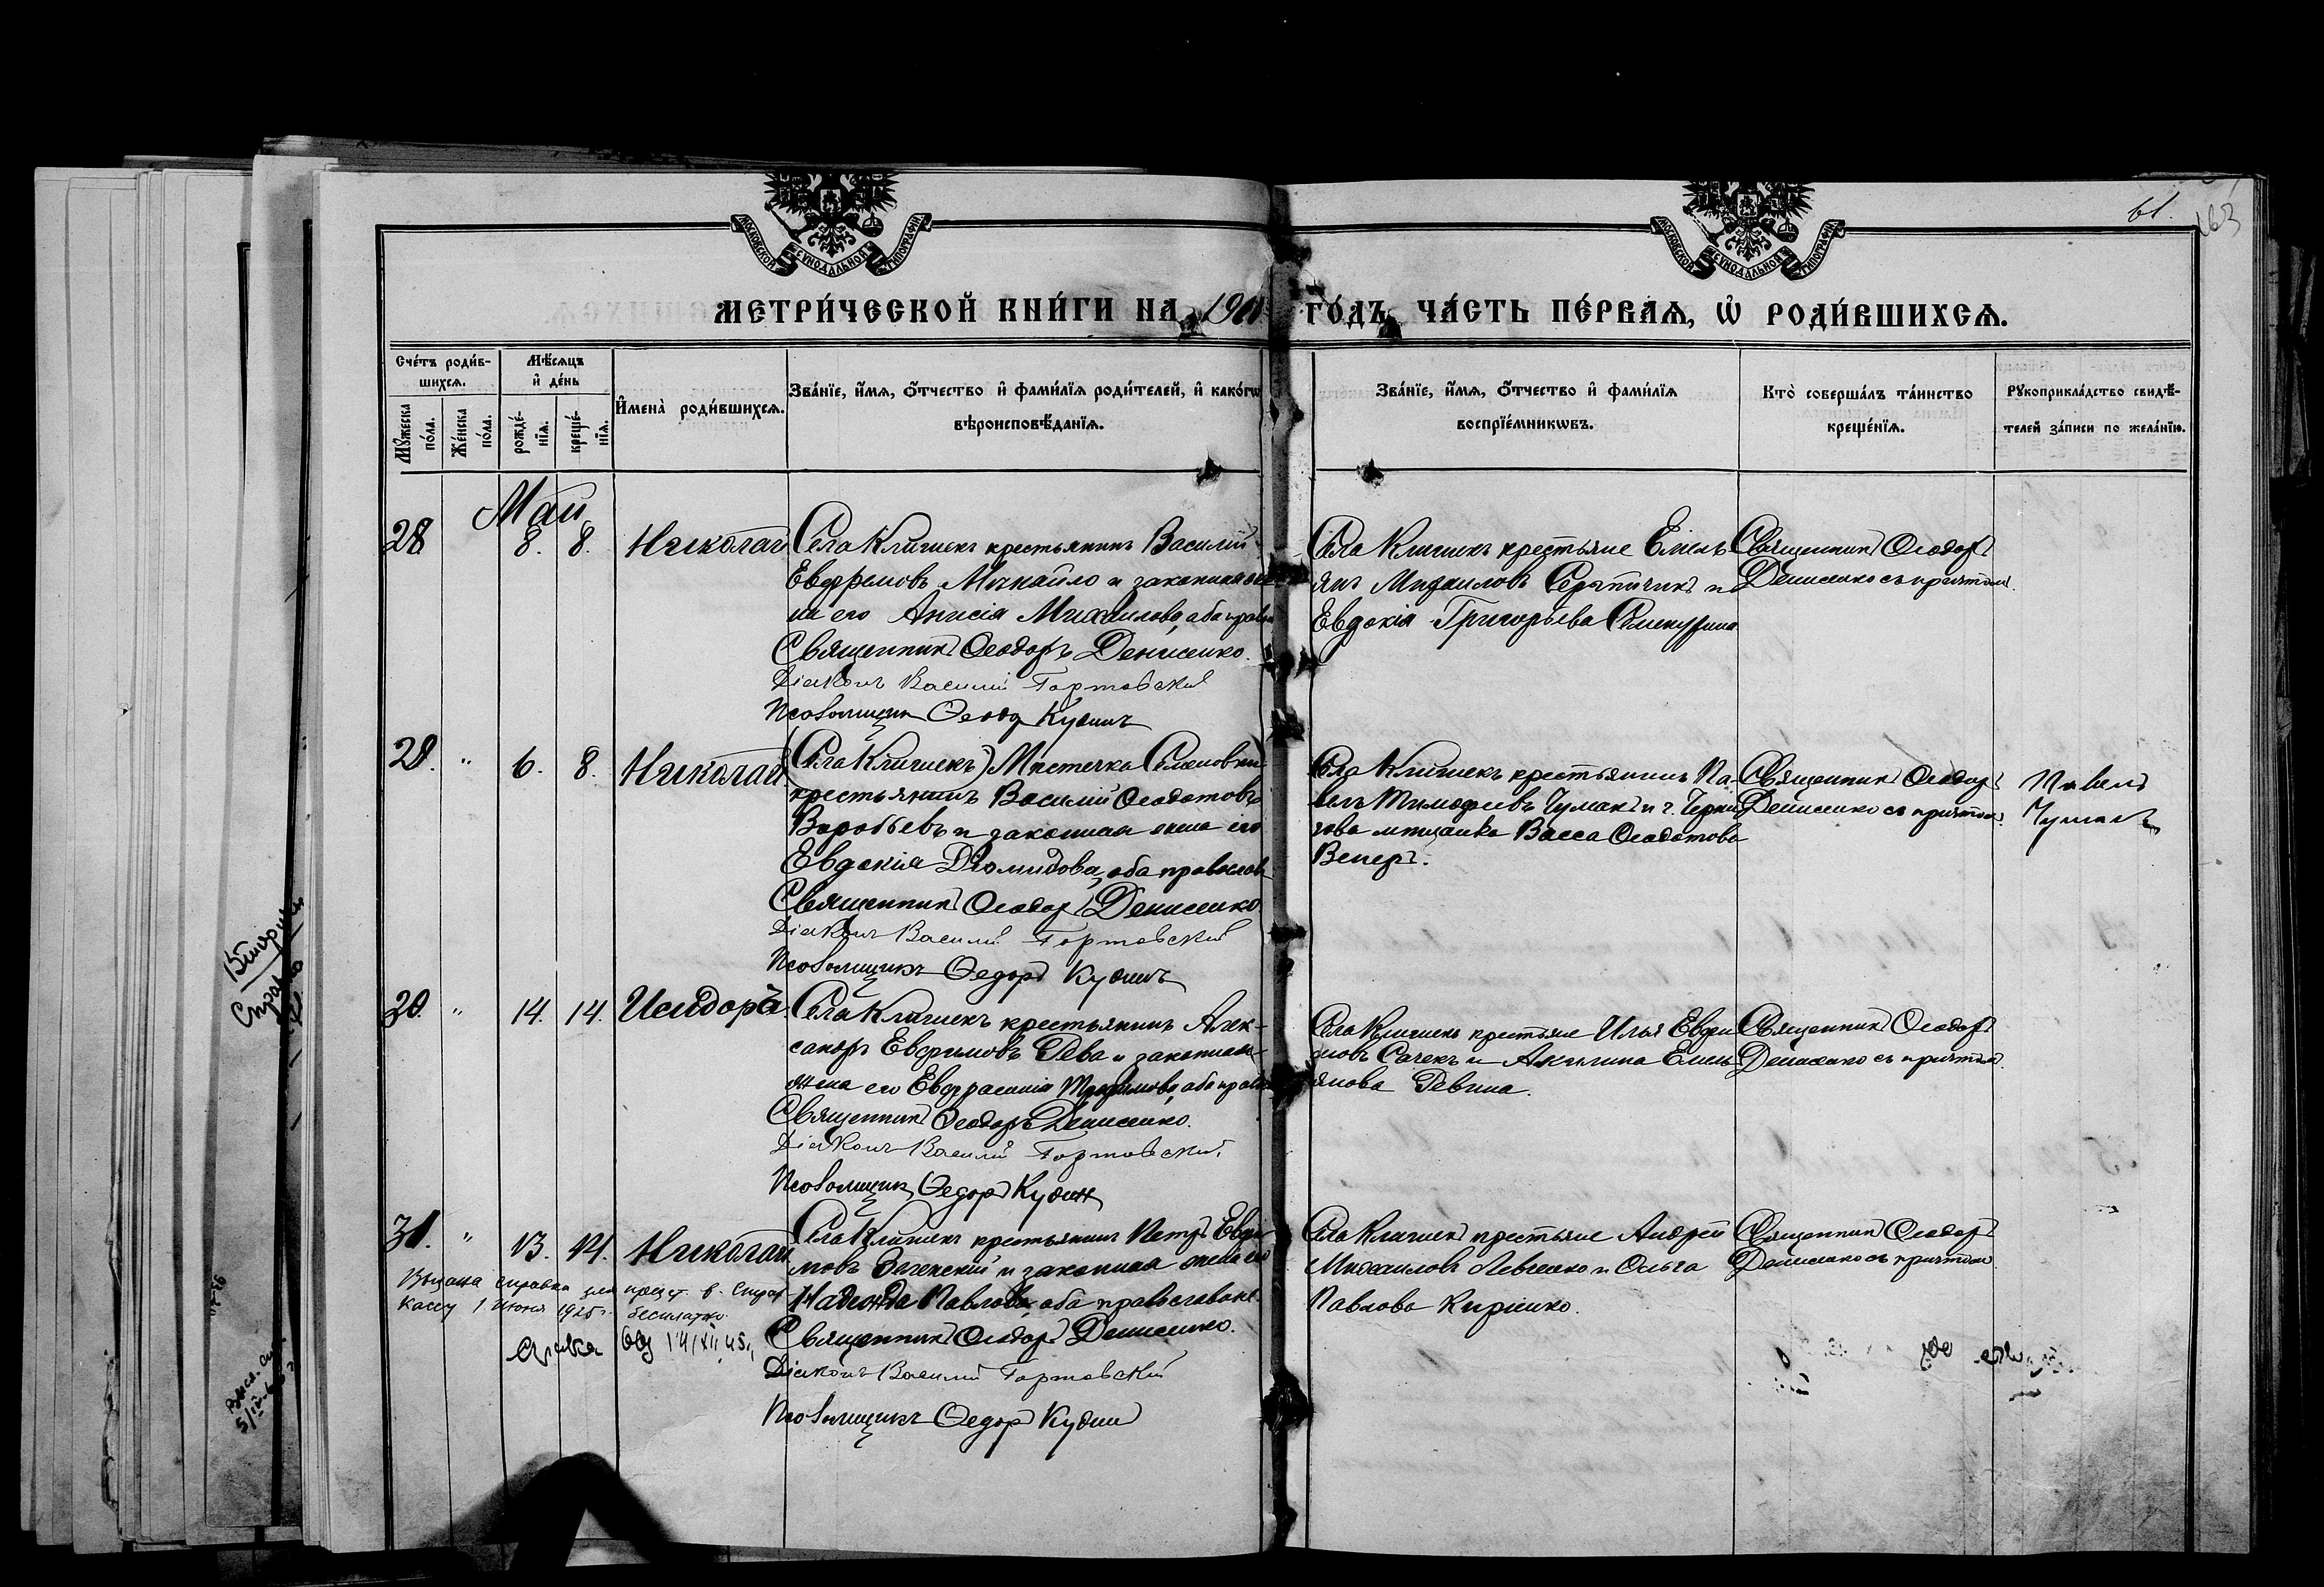 61.
163
МОСКОВСКОЙ СѴНОДАЛЬНОЙ ТИПОГРАФІИ
МОСКОВСКОЙ СѴНОДАЛЬНОЙ ТИПОГРАФІИ
МЕТРИ́ЧЕСКОЙ КНИ́ГИ НА 1901 ГО́ДЪ, ЧА́СТЬ ПЕ́РВАѦ, Ѡ҆ РОДИ́ВШИХСѦ.
Сче́тъ роди́в-
шихсѧ.
Мꙋ́жеска по́ла.
Же́нска по́ла.
Мѣ́сѧцъ
и҆ де́нь
рожде́-
нїѧ.
креще́-
нїѧ.
И҆мена̀ роди́вшихсѧ.
Зва́нїе, и҆́мѧ, ѻ҆́тчество и҆ фами́лїѧ роди́телей, и҆ како́гѡ
вѣроисповѣ́данїѧ.
Зва́нїе, и҆́мѧ, ѻ҆́тчество и҆ фами́лїѧ
воспрїе́мникѡвъ.
Кто̀ соверша́лъ та́инство
креще́нїѧ.
Рꙋкоприкла́дство свидѣ́-
телей за́писи по жела́нїю.
Май
28 8. 8. Николай
Села Клишекъ крестьянинъ Василій
Евфимовъ Михайло и законная же-
на его Анисія Михаилова, оба правосл
Священникъ Ѳеодоръ Денисенко.
Діаконъ Василій Гортовскій
Псаломщикъ Ѳеод Кудинъ
Села Клишекъ крестьяне Емель-
янъ Михаиловъ и
Евдокія Григорьева
Священникъ Ѳеодоръ
Денисенко съ причтомъ.
29. " 6. 8. Николай
(Села Клишекъ) Мѣстечка Семеновки
крестьянинъ Василій Ѳеодотовъ
Воробьевъ и законная жена его
Евдокія Діомидова, оба православ
Священникъ Ѳеодоръ Денисенко
Діаконъ Василій Гортовскій
Псаломщикъ Ѳедоръ Кудинъ
Села Клишекъ крестьянинъ Па-
велъ Тимоѳеевъ Чумакъ и г. Черни-
гова мѣщанка Васса Ѳеодотова
Веперъ.
Священникъ Ѳеодоръ
Денисенко съ причтомъ.
Павелъ
Чумакъ
30. " 14. 14. Исидоръ
Села Клишекъ крестьянинъ Алек-
сандръ Евфимовъ Рева и законная
жена его Евфрасинія оба правосл
Священникъ Ѳеодоръ Денисенко.
Діаконъ Василій Гортовскій
Псаломщикъ Ѳедоръ Кудин
Села Клишекъ крестьяне Илья Евфи-
мовъ Сачекъ и Акилина Емель-
янова Ревина.
Священникъ Ѳеодоръ
Денисенко съ причтомъ.
31. " 13. 14. Николай
Села Клишекъ крестьянинъ Петръ Евфи-
мовъ и законная жена его
Надежда Павлова, оба православные.
Священникъ Ѳеодоръ Денисенко.
Діаконъ Василій Гортовскій
Псаломщикъ Ѳедоръ Кудин
Села Клишекъ крестьяне Андрей
Михаиловъ Левченко и Ольга
Павлова Киріенко.
Священникъ Ѳеодоръ
Денисенко съ причтомъ
Выдана справка для в Страх
кассу 1 Июня 1925 г. бесплатно.